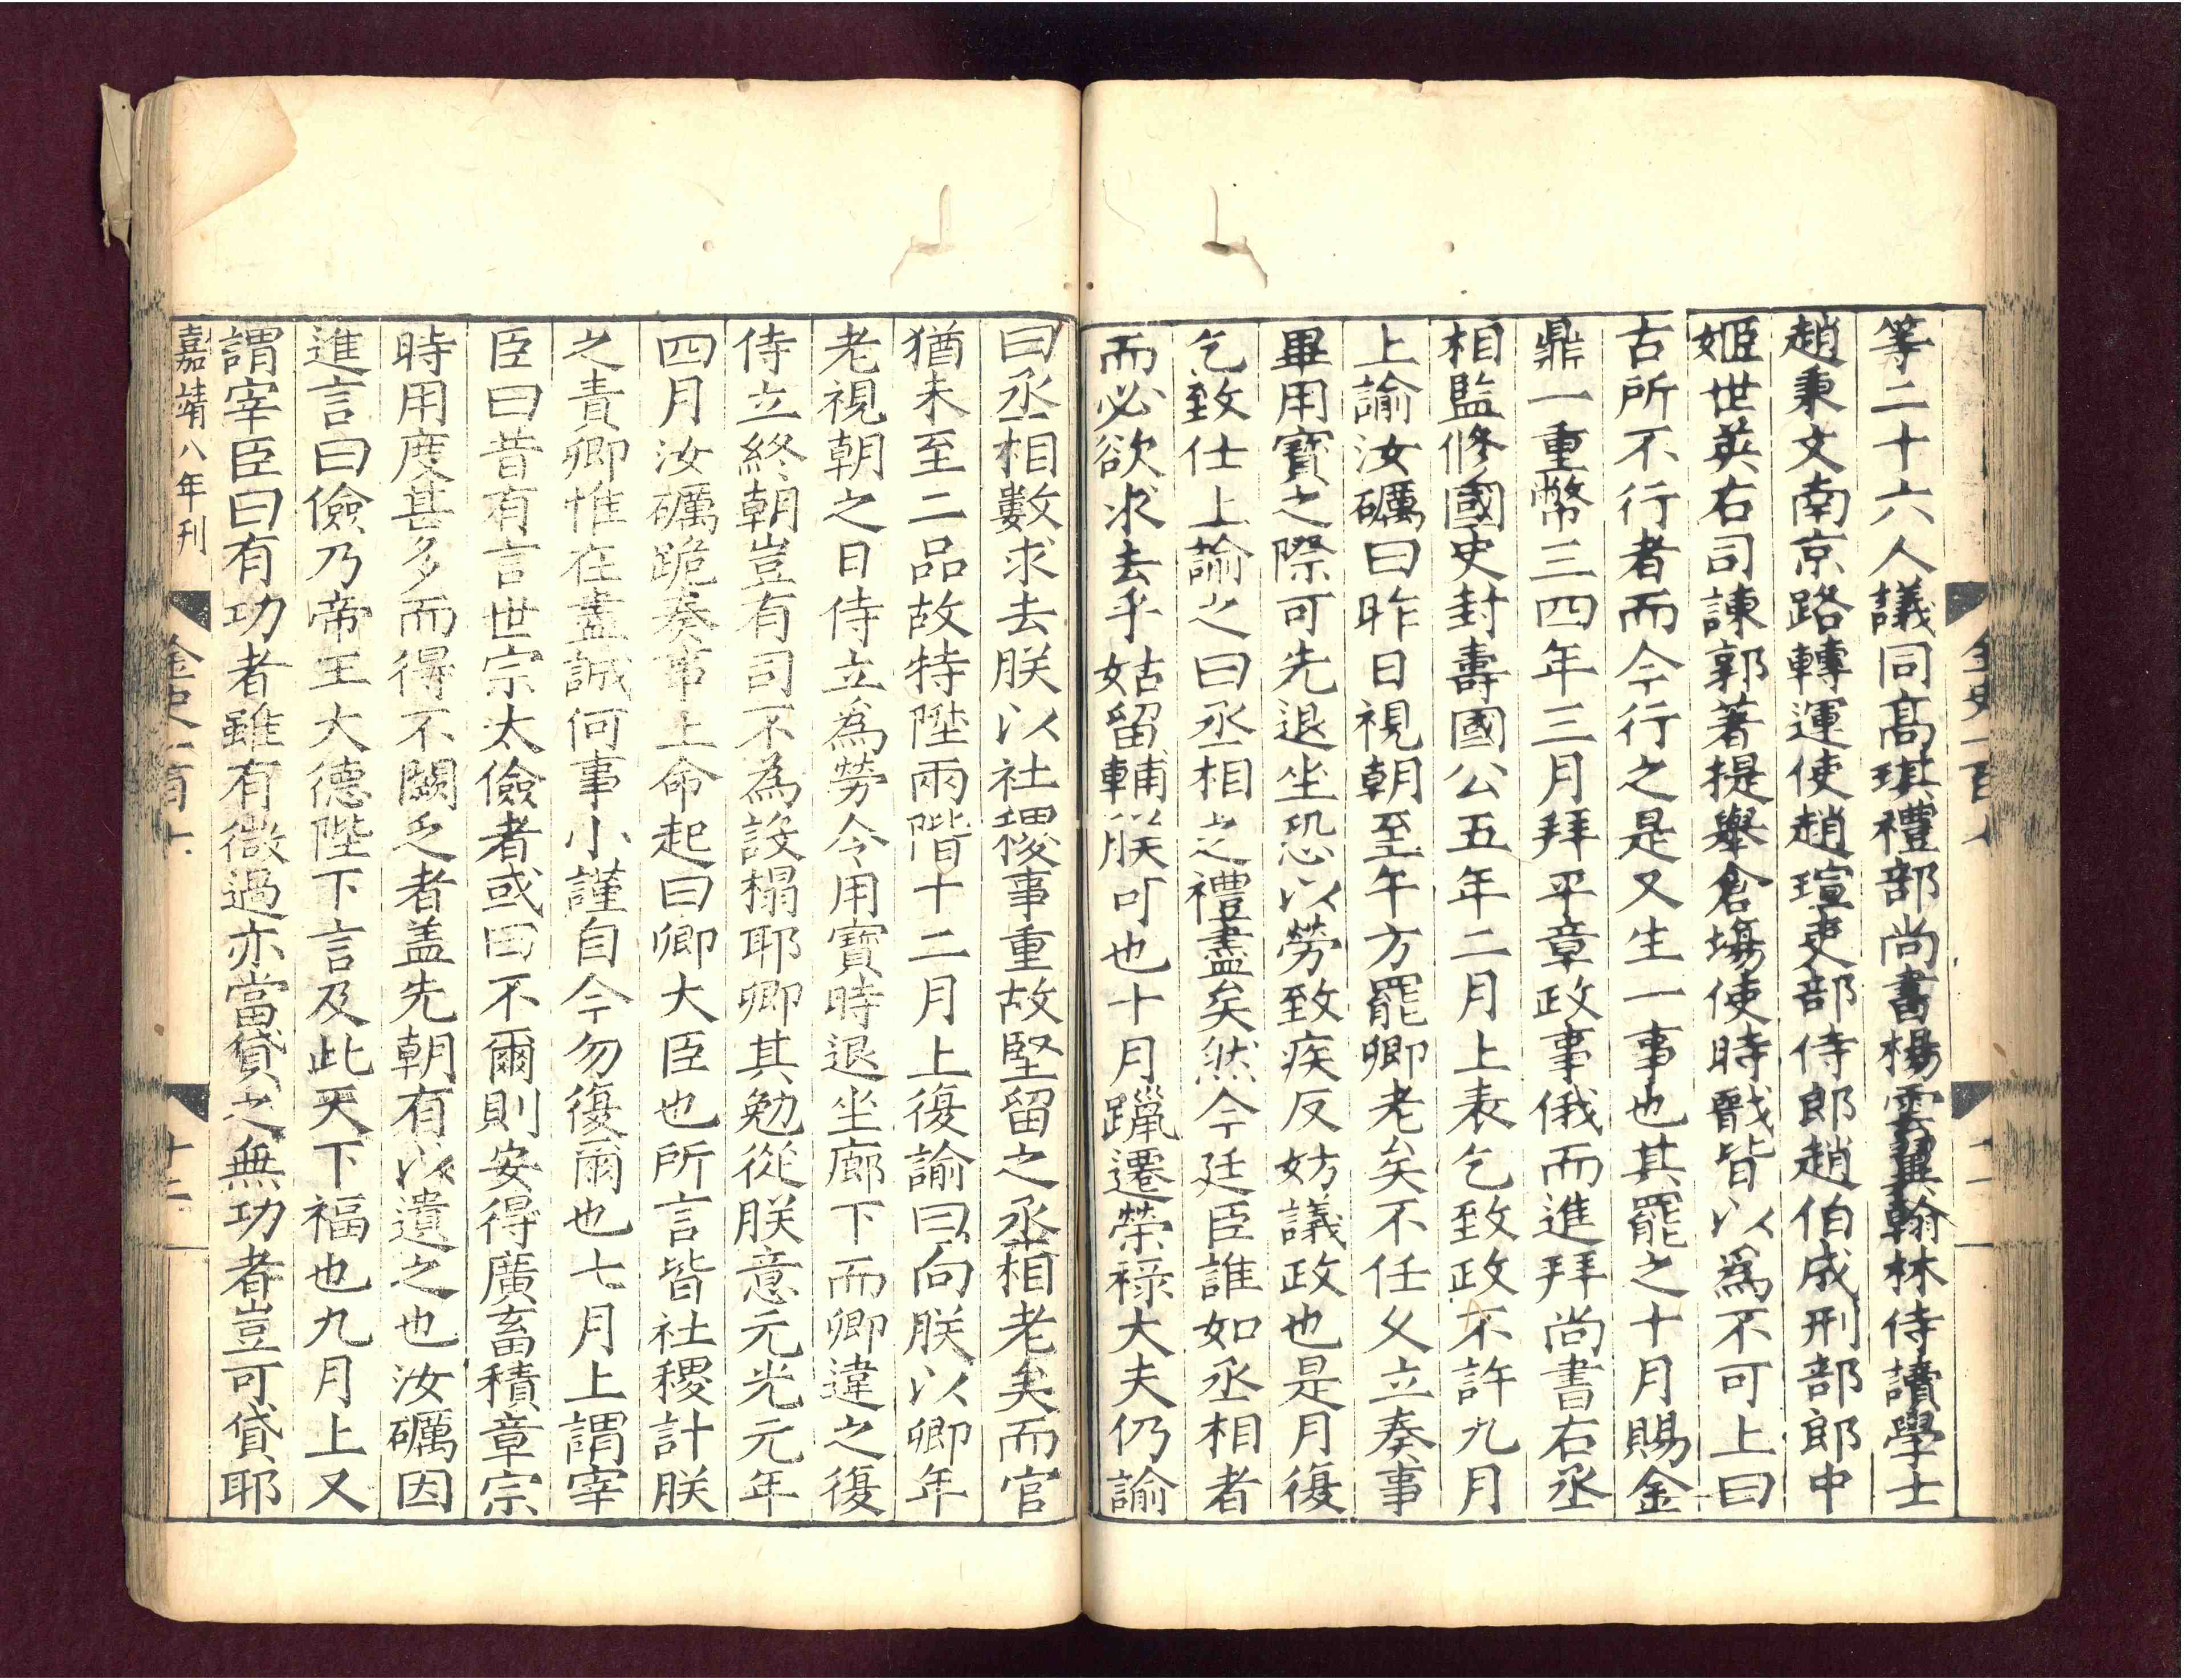 等二十六人議同高琪禮部尚書楊雲翼翰林侍讀學士
趙秉文南京路轉運使趙瑄吏部侍郎趙伯成刑部郎中
姬世英右司諫郭著提舉倉場使時戩皆以爲不可上曰
古所不行者而今行之是又生一事也其罷之十月賜金
鼎一重幣三四年三月拜平章政事俄而進拜尚書右丞
相監修國史封壽國公五年二月上表乞致政不許九月
上諭汝礪曰昨日視朝至午方罷卿老矣不任久立奏事
畢用寶之際可先退坐恐以勞致疾反妨議政也是月復
乞致仕上諭之曰丞相之禮盡矣然今廷臣誰如丞相者
而必欲求去乎姑留輔朕可也十月躐遷榮祿大夫仍諭
曰丞相數求去朕以社稷事重故堅留之丞相老矣而官
猶未至二品故特陞兩階十二月上復諭曰向朕以卿年
老視朝之日侍立為勞令用寶時退坐廊下而卿違之復
侍立終朝豈有司不為設榻耶卿其勉從朕意元光元年
四月汝礪跪奏事上命起曰卿大臣也所言皆社稷計朕
之責卿惟在盡誠何事小謹自今勿復爾也七月上謂宰
臣曰昔有言世宗太儉者或曰不爾則安得廣畜積章宗
時用度甚多而得不闕乏者盖先朝有以遺之也汝礪因
進言曰儉乃帝王大德陛下言及此天下福也九月上又
謂宰臣曰有功者雖有微過亦當貸之無功者豈可貸耶
嘉靖八年刊 金史一百七 十二